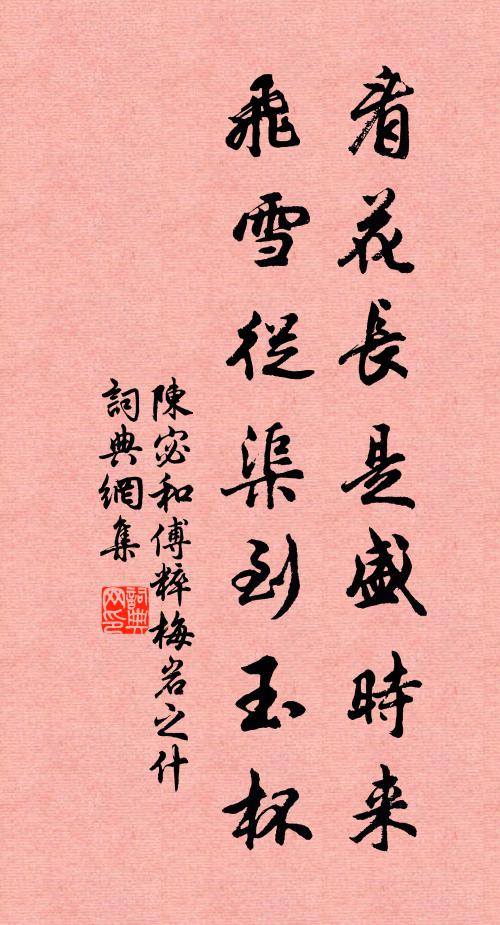 看花長是盛時来
飛雪從渠到玉杯
陳宓和傅粹梅岩之什
詞典網集
詞典网印